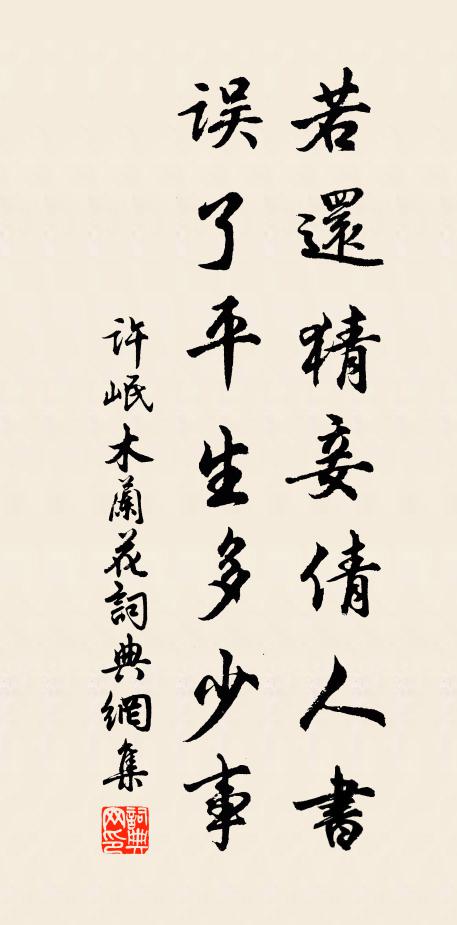 若還猜妾倩人書
误了平生多少事
許岷木蘭花詞典網集
詞典網印